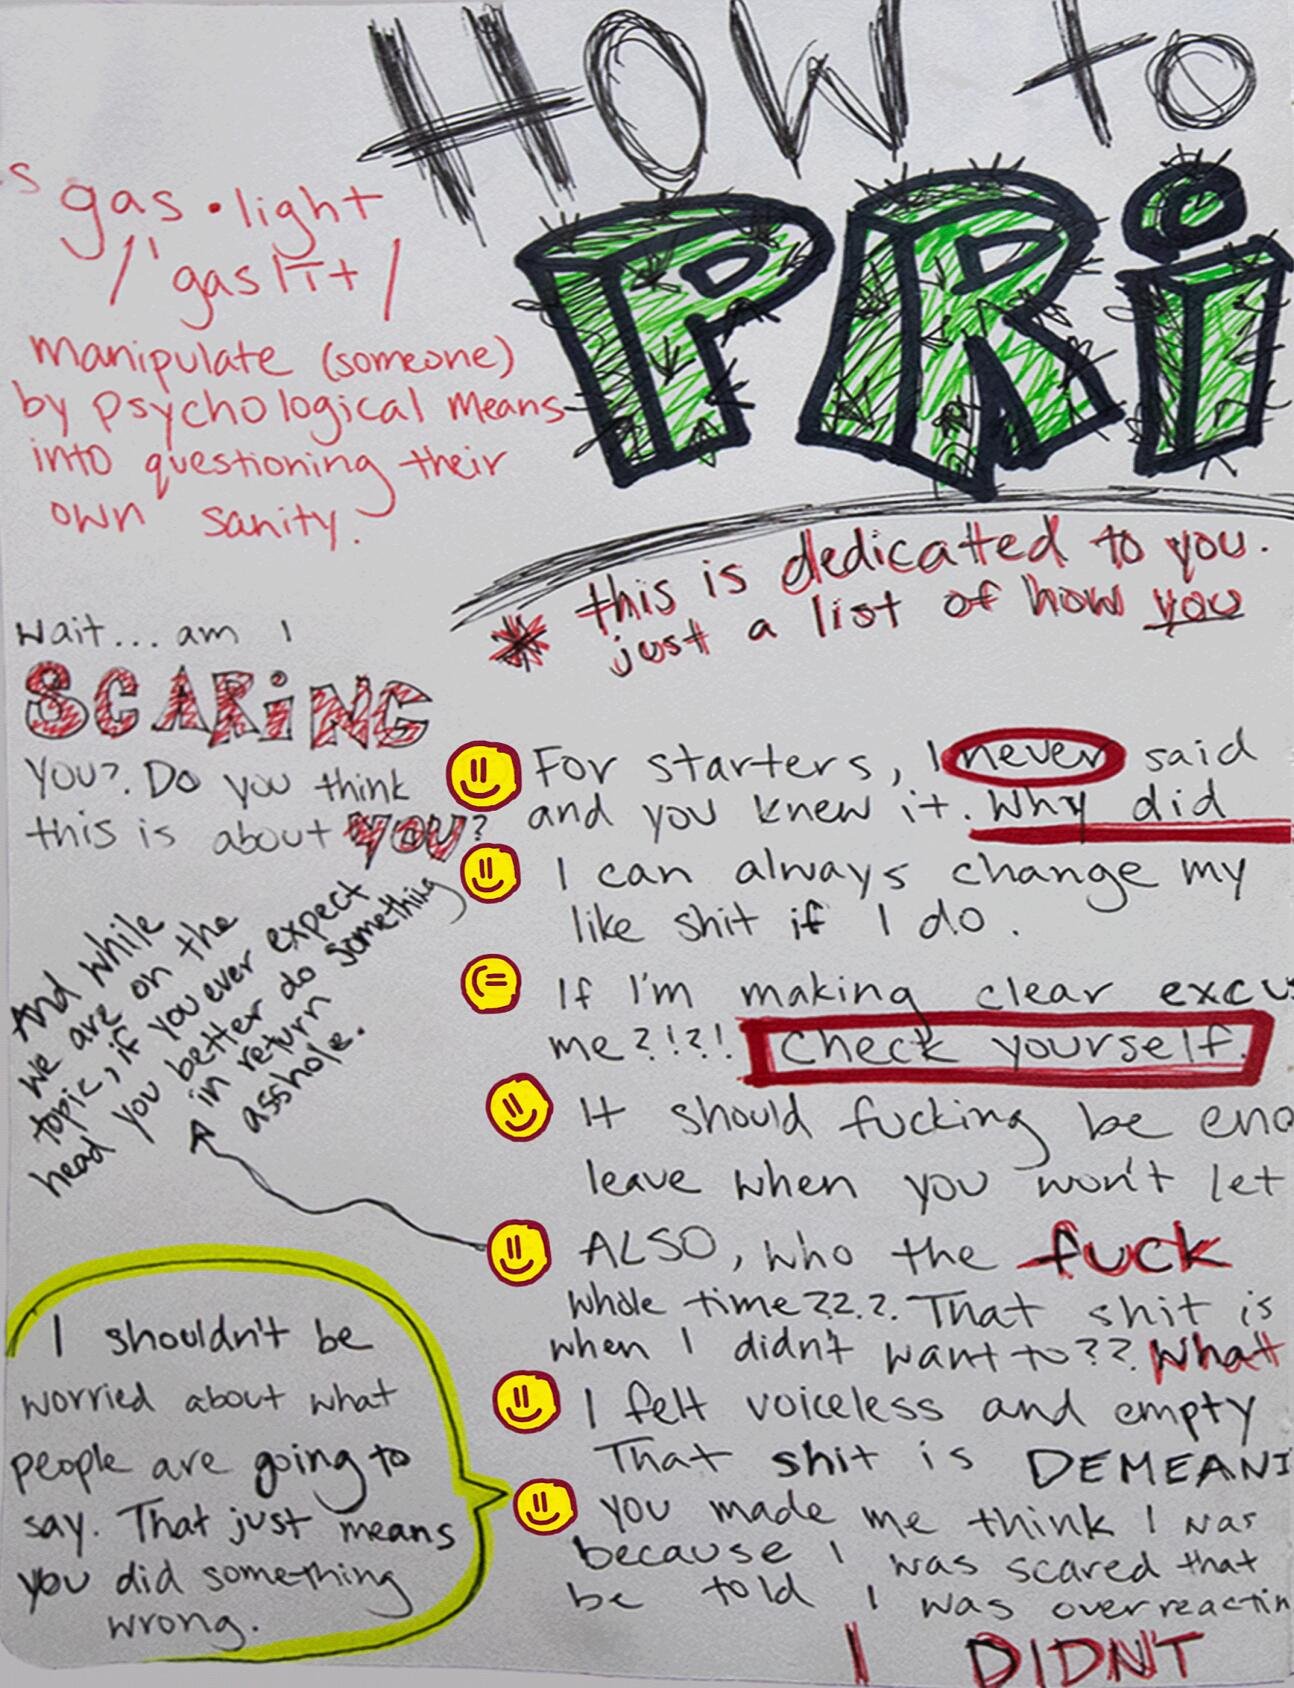 HOW to
PRi
s
gas•light
/'gaslīt/
manipulate (someone)
by psychological means
into questioning their
own sanity.
* this is dedicated to you.
just a list of how you
Wait... am I
SCARiNG
you? Do you think
this is about YOU?
And while
we are on the
topic, if you ever expect
head you better do something
in return
asshole.
I shouldn't be
worried about what
people are going to
say. That just means
you did something
wrong.
For starters, I never said
and you knew it. Why did
I can always change my
like shit if I do.
If I'm making clear excu
me?!?! Check yourself.
It should fucking be eno
leave when you won't let
ALSO, who the fuck
whole time???. That shit is
when I didn't want to??. What
I felt voiceless and empty
That shit is DEMEANI
you made me think I was
because I was scared that
be told I was overreactin
I DIDN'T